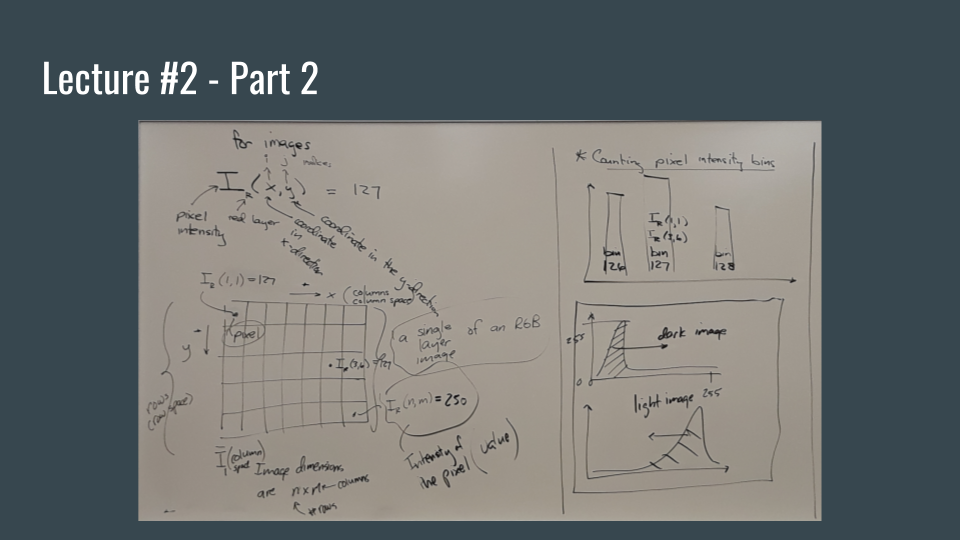 Lecture #2 - Part 2
for images
i j indices
I_R(x,y) = 127
pixel
intensity
red layer
coordinate
in
x-direction
coordinate in the y-direction
I_R(1,1)=127
x (columns
column space)
pixel
y
rows
(row space)
a single
layer
image
of an RGB
I_R(n,m)=250
Intensity of
the pixel (value)
(column)
space
Image dimensions
are n×m columns
rows
* Counting pixel intensity bins
I_R(1,1)
bin
126
bin
127
bin
128
255
dark image
0 0
255
light image